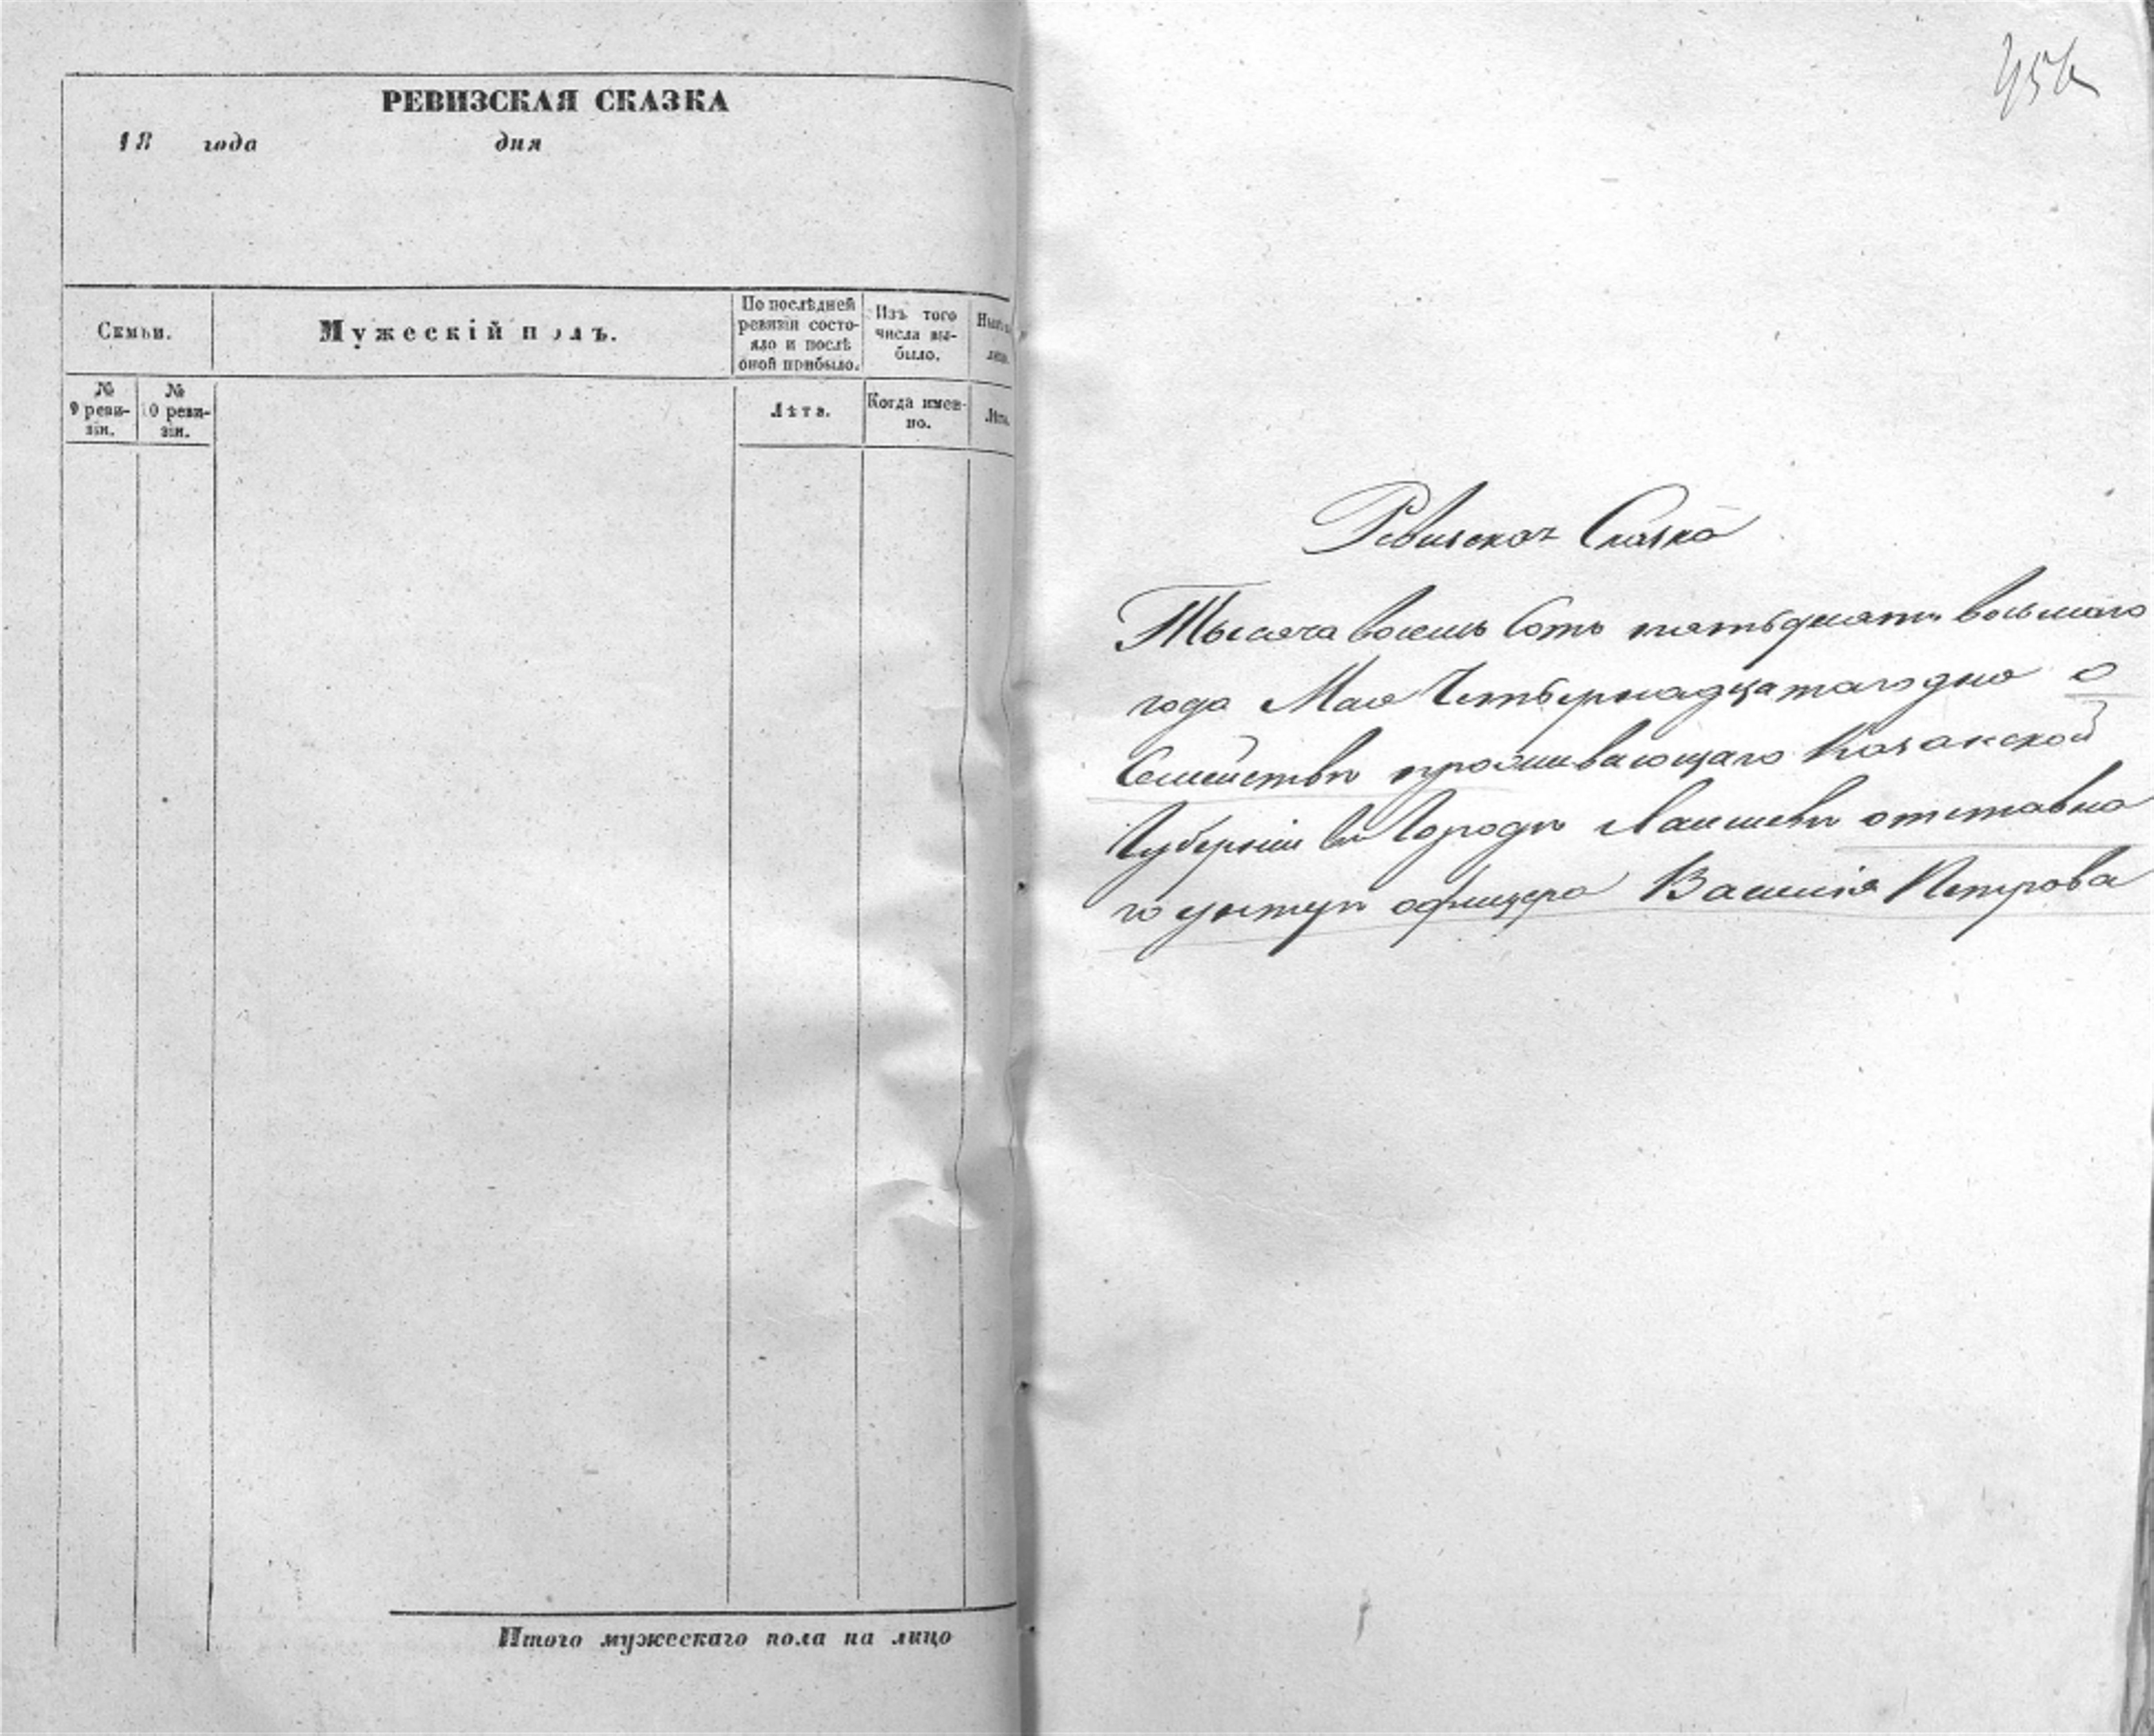 РЕВИЗСКАЯ СКАЗКА
18 года дня
Семьи.
Мужескій полъ.
По послѣдней ревизіи состояло и послѣ оной прибыло.
Изъ того числа выбыло.
№ 9 ревизіи.
№ 10 ревизіи.
Лѣта.
Когда именно.
Лѣта.
Итого мужескаго пола на лицо
Ревизская Сказка
Тысяча восемь Сотъ пятьдесятъ восьмаго
года Мая Четырнадцатаго дня о
Семействѣ проживающаго Казанской
Губерніи въ Городѣ Лаишевѣ отставна
го унтеръ офицера Василія Петрова